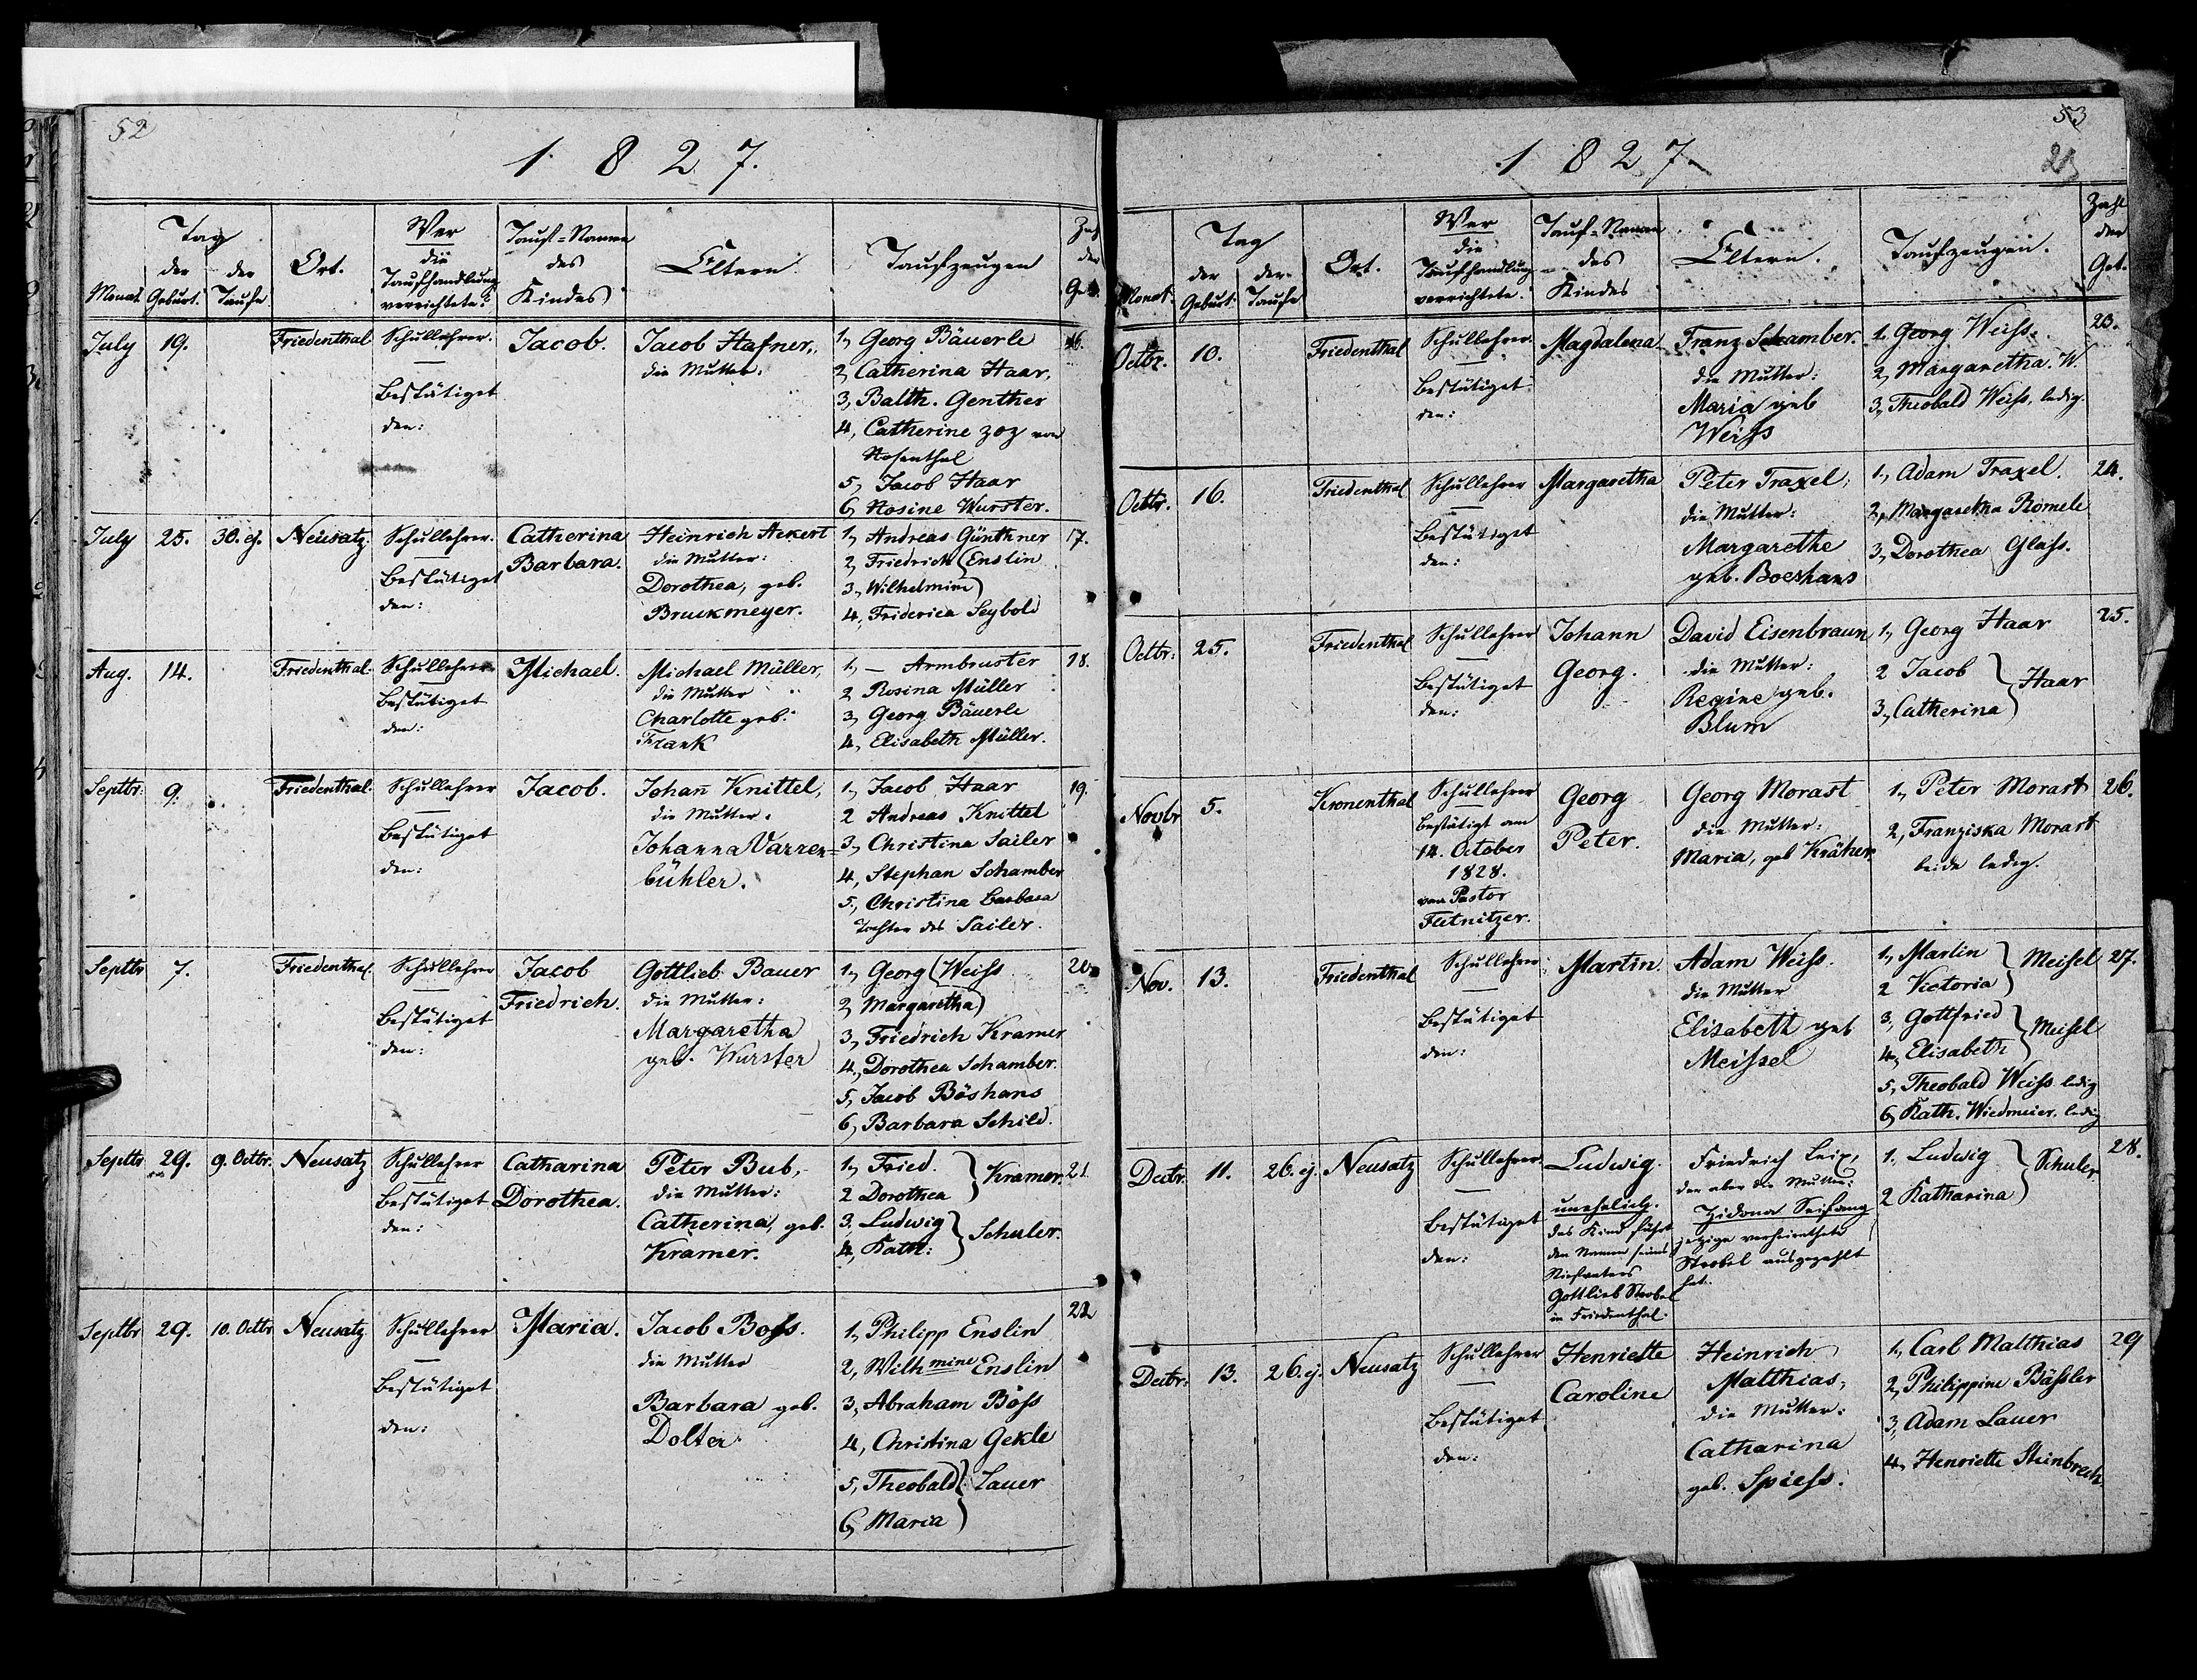 52
1 8 2 7.
Tag
Monat. der Geburt. der Taufe
Ort.
Wer
die
Taufhandlung
verrichtete?
Tauf-Namen
des
Kindes
Eltern.
Taufzeugen
Zahl
der
Geb.
July 19. Friedenthal
Schullehrer.
Bestätiget
den:
Jacob.
Jacob Hafner,
die Mutter:
1, Georg Bäuerle
2, Catherina Haar,
3, Balth. Genther
4, Catherine Zoz von
Rosenthal
5, Jacob Haar
6, Rosine Wurster.
16.
July 25. 30. ej. Neusatz.
Schullehrer.
Bestätiget
den:
Catherina
Barbara.
Heinrich Ackert
die Mutter:
Dorothea, geb.
Bruckmeyer.
1, Andreas Günthner
2, Friedrich } Enslin
3, Wilhelmine
4, Friderica Seybold
17.
Aug. 14. Friedenthal.
Schullehrer
Bestätiget
den:
Michael.
Michael Müller,
die Mutter
Charlotte geb.
Frank
1, — Armbruster
2 Rosina Müller
3, Georg Bäuerle
4, Elisabeth Müller.
18.
Septbr: 9. Friedenthal.
Schullehrer
Bestätiget
den:
Jacob.
Johañ Knittel,
die Mutter.
Johanna Varren=
bühler.
1, Jacob Haar
2 Andreas Knittel
3, Christina Sailer
4, Stephan Schamber
5., Christina Barbara
Tochter des Sailer.
19.
Septbr 7. Friedenthal.
Schullehrer
Bestätiget
den:
Jacob
Friedrich.
Gottlieb Bauer
die Mutter:
Margaretha
geb. Wurster
1, Georg } Weiss
2, Margaretha
3, Friedrich Kramer
4., Dorothea Schamber.
5, Jacob Böshans
6, Barbara Schild.
20.
Septbr 29. 9. Octbr. Neusatz
Schullehrer
Bestätiget
den:
Catharina
Dorothea.
Peter Bub,
die Mutter:
Catherina, geb.
Kramer.
1, Fried.
2 Dorothea } Kramer.
3. Ludwig
4, Kath: } Schuler.
21
Septbr 29. 10. Octbr Neusatz
Schullehrer
Bestätiget
den:
Maria.
Jacob Boss.
die Mutter
Barbara geb.
Dolter
1, Philipp Enslin
2, Wilhmine Enslin
3, Abraham Böss
4, Christina Gekle
5, Theobald } Lauer
6, Maria
22
53
1 8 2 7.
Tag
Monat. der Geburt. der Taufe
Ort.
Wer
die
Taufhandlung
verrichtete.
Tauf-Namen
des
Kindes
Eltern.
Taufzeugen.
Zahl
der
Geb.
Octbr. 10. Friedenthal
Schullehrer.
Bestätiget
den:
Magdalena
Franz Schamber.
die Mutter:
Maria geb
Weiss
1. Georg Weiss.
2, Margaretha. W.
3, Theobald Weiss, ledig.
23.
Octbr. 16. Friedenthal
Schullehrer
Bestätiget
den:
Margaretha
Peter Traxel,
die Mutter:
Margarethe
geb. Boeshans
1, Adam Traxel.
2, Margaretha Romele
3, Dorothea Glass.
24.
Octbr: 25. Friedenthal
Schullehrer
Bestätiget
den:
Johann
Georg.
David Eisenbraun
die Mutter:
Regine geb.
Blum
1, Georg Haar
2 Jacob
3, Catherina } Haar
25.
Novbr 5. Kronenthal
Schullehrer
bestätigt am
14. October
1828.
von Pastor
Fletnitzer.
Georg
Peter.
Georg Morast
die Mutter:
Maria, geb Kräher.
1, Peter Morast
2, Franziska Morast
beide ledig.
26.
Nov. 13. Friedenthal
Schullehrer
Bestätiget
den:
Martin.
Adam Weiss.
die Mutter
Elisabeth geb
Meissel
1, Martin
2 Victoria } Meisel
3, Gottfried
4, Elisabeth } Meisel
5, Theobald Weiss ledig
6, Kath. Wiedmeier, ledig
27.
Decbr. 11. 26. ej. Neusatz
Schullehrer
Bestätiget
den:
Ludwig.
unehelich.
das Kind führt
den Namen seines
Stiefvaters
Gottlieb Strobel
in Friedenthal.
Friedrich Leix,
der aber die Mutter:
Zidona Seifang
jezige verheirathete
Strobel ausgezahlt
hat.
1. Ludwig
2 Katharina } Schuler
28.
Decbr: 13. 26. ej. Neusatz
Schullehrer
Bestätiget
den:
Henriette
Caroline
Heinrich
Matthias,
die Mutter:
Catharina
geb. Spiess.
1, Carl Matthias
2, Philippine Bässler
3, Adam Lauer
4, Henriette Steinbrech.
29